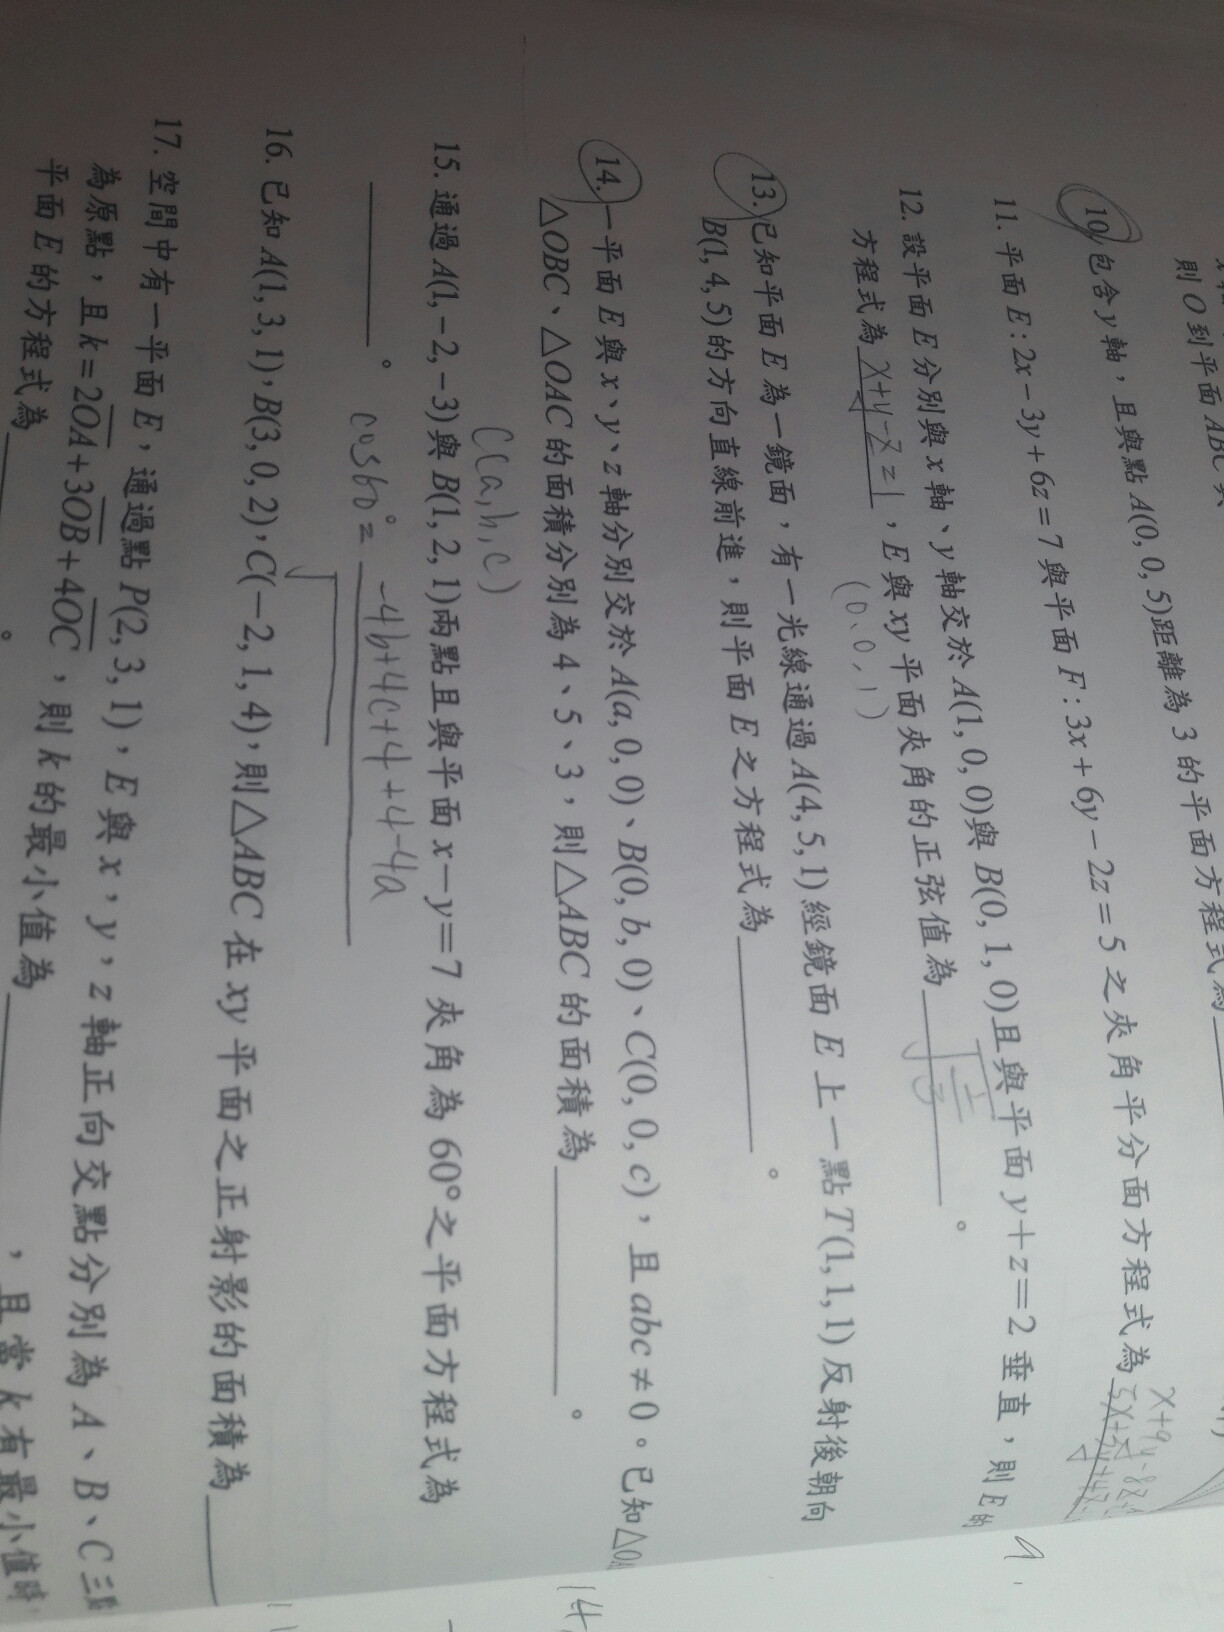 則 O 到平面 ABC
10. 包含 y 軸，且與點 A(0, 0, 5)距離為 3 的平面方程式為
11. 平面 E : 2x－3y＋6z＝7 與平面 F : 3x＋6y－2z＝5 之夾角平分面方程式為
x+9y-8z
5x+3y+4z
12. 設平面 E 分別與 x 軸、y 軸交於 A(1, 0, 0)與 B(0, 1, 0)且與平面 y＋z＝2 垂直，則 E 的
方程式為 x+y-z=1 ，E 與 xy 平面夾角的正弦值為 。
(0、0, 1)
13. 已知平面 E 為一鏡面，有一光線通過 A(4, 5, 1)經鏡面 E 上一點 T(1, 1, 1)反射後朝向
B(1, 4, 5)的方向直線前進，則平面 E 之方程式為 。
14. 一平面 E 與 x、y、z 軸分別交於 A(a, 0, 0)、B(0, b, 0)、C(0, 0, c)，且 abc≠0。已知△OA
△OBC、△OAC 的面積分別為 4、5、3，則△ABC 的面積為 。
C(a,b,c)
15. 通過 A(1, －2, －3)與 B(1, 2, 1)兩點且與平面 x－y＝7 夾角為 60°之平面方程式為
。
cos60°= -4b+4c+4+4-4a
16. 已知 A(1, 3, 1)，B(3, 0, 2)，C(－2, 1, 4)，則△ABC 在 xy 平面之正射影的面積為
17. 空間中有一平面 E，通過點 P(2, 3, 1)，E 與 x，y，z 軸正向交點分別為 A、B、C 三點
為原點，且 k＝2OA＋3OB＋4OC，則 k 的最小值為 ，且當 k 有最小值時
平面 E 的方程式為 。